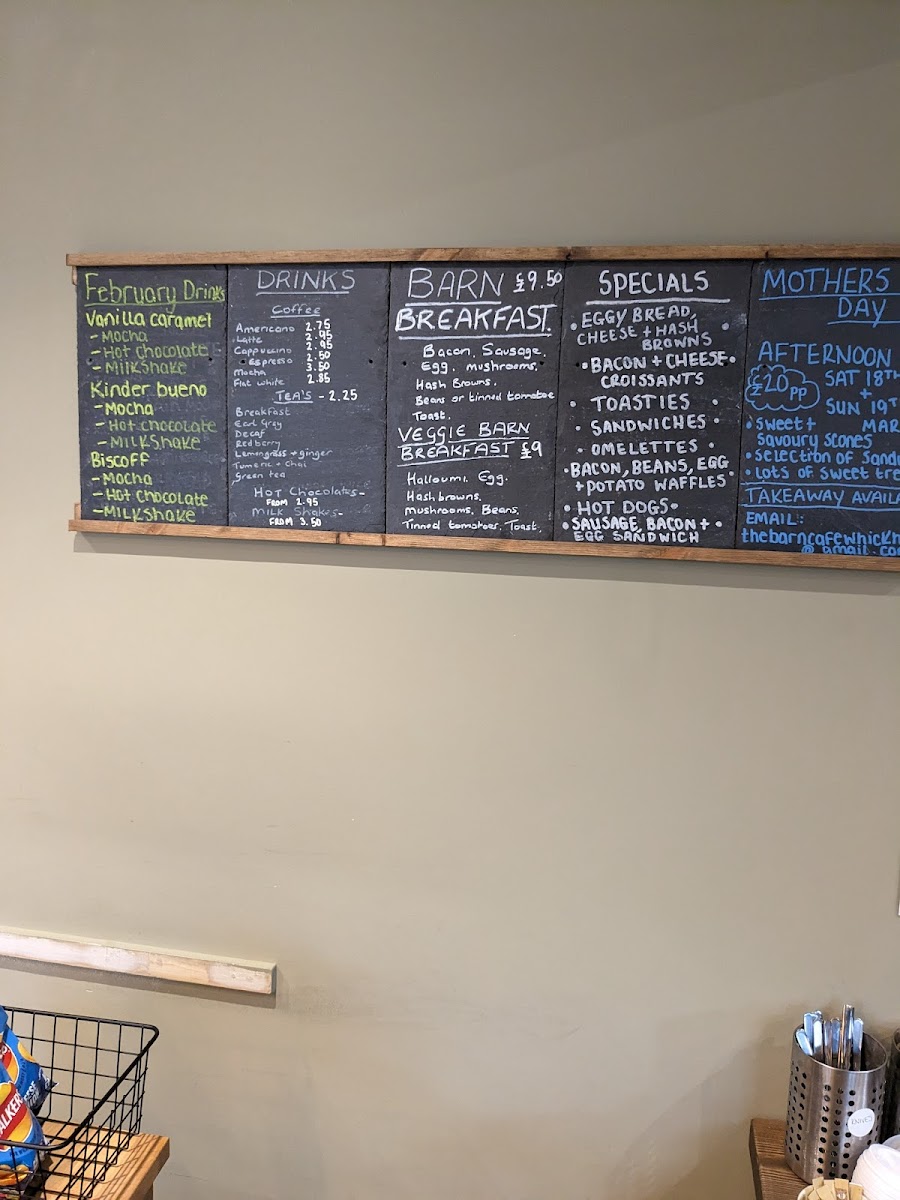 February Drinks
Vanilla caramel
- Mocha
- Hot chocolate
- Milkshake
Kinder bueno
- Mocha
- Hot chocolate
- Milkshake
Biscoff
- Mocha
- Hot chocolate
- Milkshake
DRINKS
Coffee
Americano 2.75
Latte 2.95
Cappuccino 2.95
Espresso 2.50
Mocha 3.50
Flat white 2.85
TEA'S - 2.25
Breakfast
Earl Gray
Decaf
Redberry
Lemongrass + ginger
Tumeric + Chai
Green tea
HOT Chocolates -
FROM 2.95
MILK Shakes -
FROM 3.50
BARN £9.50
BREAKFAST.
Bacon, Sausage,
Egg, mushrooms,
Hash Browns,
Beans or tinned tomatoe
Toast.
VEGGIE BARN
BREAKFAST £9
Halloumi, Egg,
Hashbrowns,
mushrooms, Beans,
Tinned tomatoes, Toast.
SPECIALS
• EGGY BREAD, •
CHEESE + HASH
BROWNS
• BACON + CHEESE •
CROISSANTS
• TOASTIES •
• SANDWICHES •
• OMELETTES •
• BACON, BEANS, EGG
+ POTATO WAFFLES •
• HOT DOGS •
• SAUSAGE, BACON + •
EGG SANDWICH
MOTHERS
DAY
AFTERNOON
£20 pp
SAT 18TH
+
SUN 19T
MAR
• sweet +
savoury scones
• selection of Sand
• Lots of sweet tre
TAKEAWAY AVAIL
EMAIL:
thebarncafewhickh
@gmail.co
ALKER
KNIVES